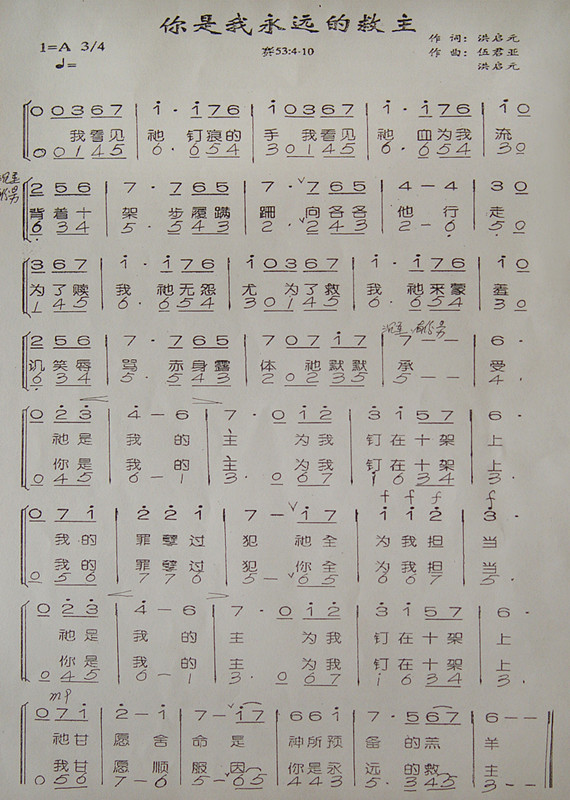 你是我永远的救主
1=A 3/4
赛53:4-10
作 词: 洪启元
作 曲: 伍君亚
洪启元
♩=
0 0 3 6 7 i · i 7 6 i 0 3 6 7 i · i 7 6 i 0
我看见 祂 钉痕的 手 我看见 祂 血为我 流
0 0 1 4 5 6 · 6 5 4 3 0 1 4 5 6 · 6 5 4 3 0
2 5 6 7 · 7 6 5 7 · 7 6 5 4 - 4 3 0
背着十 架 步履蹒 跚 向各各 他 行 走
6 3 4 5 · 5 4 3 2 · 2 4 3 2 - 6 5 0
3 6 7 i · i 7 6 i 0 3 6 7 i · i 7 6 i 0
为了赎 我 祂无怨 尤 为了救 我 祂来蒙 羞
1 4 5 6 · 6 5 4 3 0 1 4 5 6 · 6 5 4 3 0
2 5 6 7 · 7 6 5 7 0 7 i 7 7 - - 6 ·
讥笑辱 骂 赤身露 体 祂默默 承 受
6 3 4 5 · 5 4 3 2 0 2 3 5 5 - - 4 ·
0 2 3 4 - 6 7 · 0 i 2 3 i 5 7 6 ·
祂是 我 的 主 为我 钉在十架 上
你是 我 的 主 为我 钉在十架 上
0 4 5 6 - 1 3 · 0 6 7 1 6 3 4 3 ·
f f f f
0 7 i 2 2 i 7 - i 7 i i 2 3 ·
我的 罪孽过 犯 祂全 为我担 当
我的 罪孽过 犯 你全 为我担 当
0 5 6 7 7 6 5 - 6 5 6 6 7 5 ·
0 2 3 4 - 6 7 · 0 i 2 3 i 5 7 6 ·
祂是 我 的 主 为我 钉在十架 上
你是 我 的 主 为我 钉在十架 上
0 4 5 6 - 1 3 · 0 6 7 1 6 3 4 3 ·
mp
0 7 i 2 - i 7 - i 7 6 6 i 7 · 5 6 7 6 - -
祂甘 愿 舍 命 是 神所预 备 的羔 羊
我甘 愿 顺 服 因 你是永 远 的救 主
0 5 6 7 - 6 5 - 6 5 6 6 6 5 · 3 4 5 3 - -